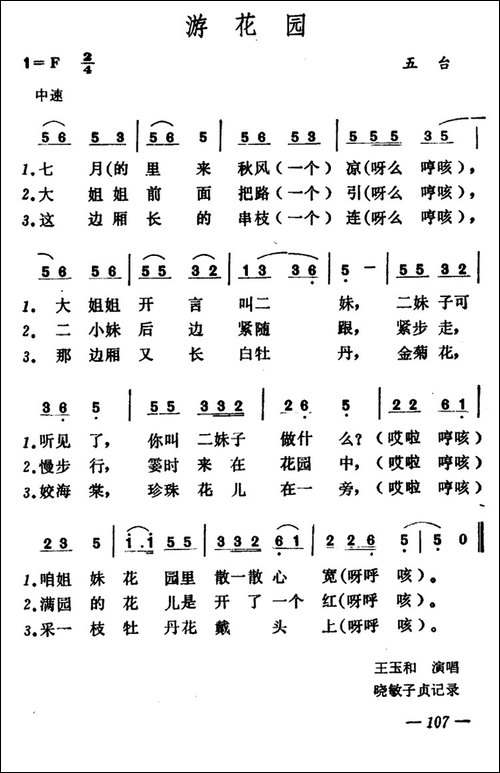 游花园
1=F 2/4
五台
中速
5 6 5 3 | 5 6 5 | 5 3 5 5 5 | 3 5 5 |
1.七月(的里来秋风(一个)凉(呀么哼咳),
2.大姐姐前面把路(一个)引(呀么哼咳),
3.这边厢长的串枝(一个)连(呀么哼咳),
5 6 5 6 | 5 5 3 2 | 1 3 3 6 | 5 - | 5 5 3 2 |
1.大姐姐开言叫二妹,二妹子可
2.二小妹后边紧随跟,紧步走,
3.那边厢又长白牡丹,金菊花,
3 6 5 | 5 5 3 3 2 | 2 6 5 | 2 2 6 1 |
1.听见了,你叫二妹子做什么?(哎啦哼咳)
2.慢步行,霎时来在花园中,(哎啦哼咳)
3.姣海棠,珍珠花儿在一旁,(哎啦哼咳)
2 3 5 | 1 1 5 5 | 3 3 2 6 1 | 2 2 6 5 | 5 0 ‖
1.咱姐妹花园里散一散心宽(呀呼咳)。
2.满园的花儿是开了一个红(呀呼咳)。
3.采一枝牡丹花戴头上(呀呼咳)。
王玉和 演唱
晓敏子贞记录
— 107 —